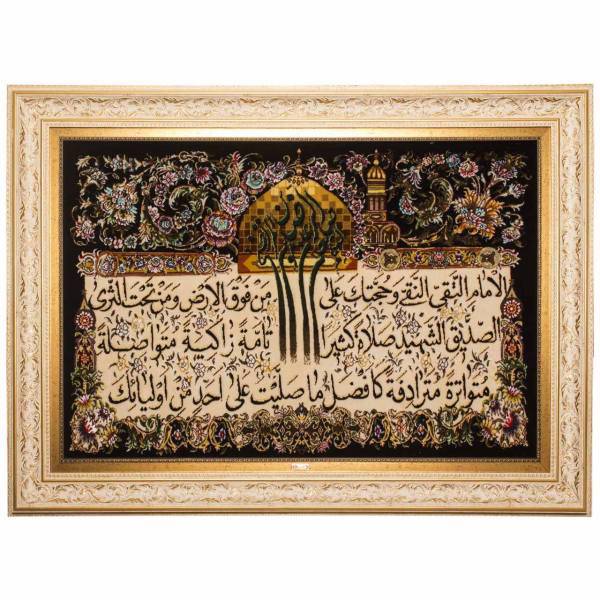 الامام التقی النقی و حجتك علی من فوق الارض ومن تحت الثری
الصدیق الشهید صلاة کثیرا تامة زاکیة متواصلة
متواترة مترادفة کافضل ما صلیت علی احد من اولیائك